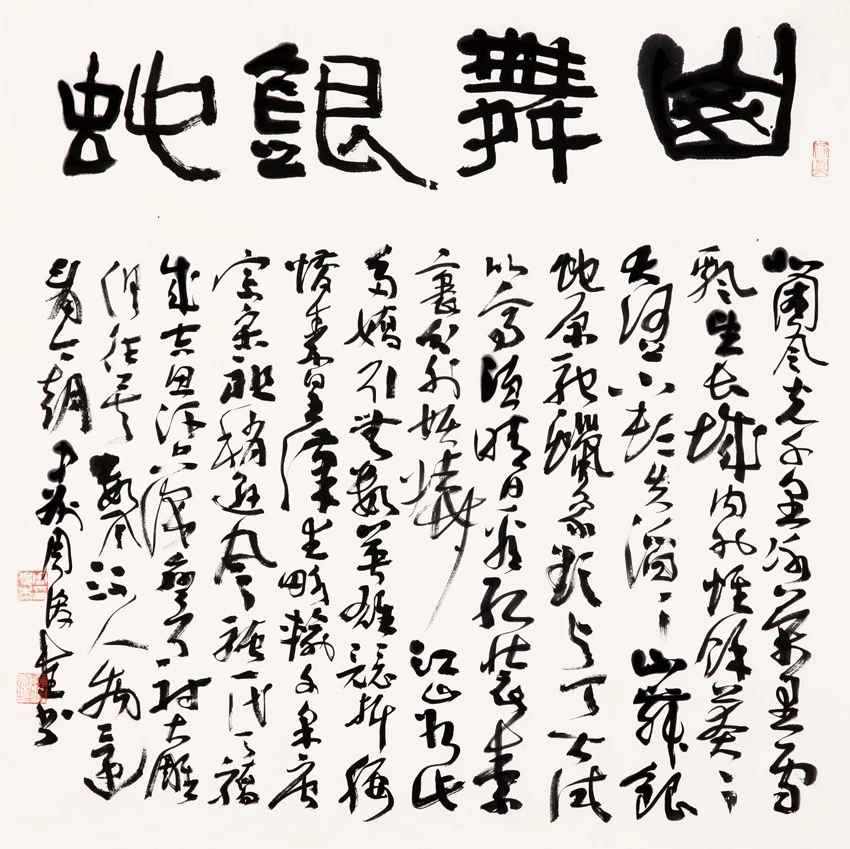 山舞銀蛇
北國風光千里冰萬里雪
飄望長城内外惟餘莽〻
大河上下頓失滔〻山舞銀
蛇原馳蠟象欲與天公試
比高須晴日看紅裝素
裹分外妖嬈江山如此
多嬌引無數英雄競折腰
惜秦皇漢武略輸文采唐
宗宋祖稍遜風騷一代天驕
成吉思汗只識彎弓射大雕
俱往矣數風流人物還
看今朝 周俊杰书